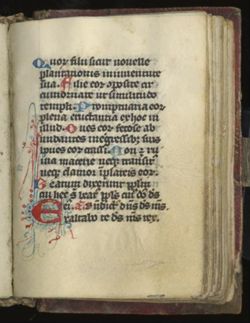 Quor filii sicut nouelle
plantationis in iuuentute
sua. Filie eor cõposite cir
cumornate ut similitudo
templi. Promptuaria eor
plena eructantia ex hoc in
illud. Oues eor fetose ab
undantes in egressib; suis
boues eor crasse. Non ẽ ru
ina macerie neq; transit
neq; clamor in plateis eor.
Beatum dixerunt pplm
cui hec s beat ppls cui dñs ds
ei. Bñdict dñs ds ms
Exaltabo te ds ms rex.